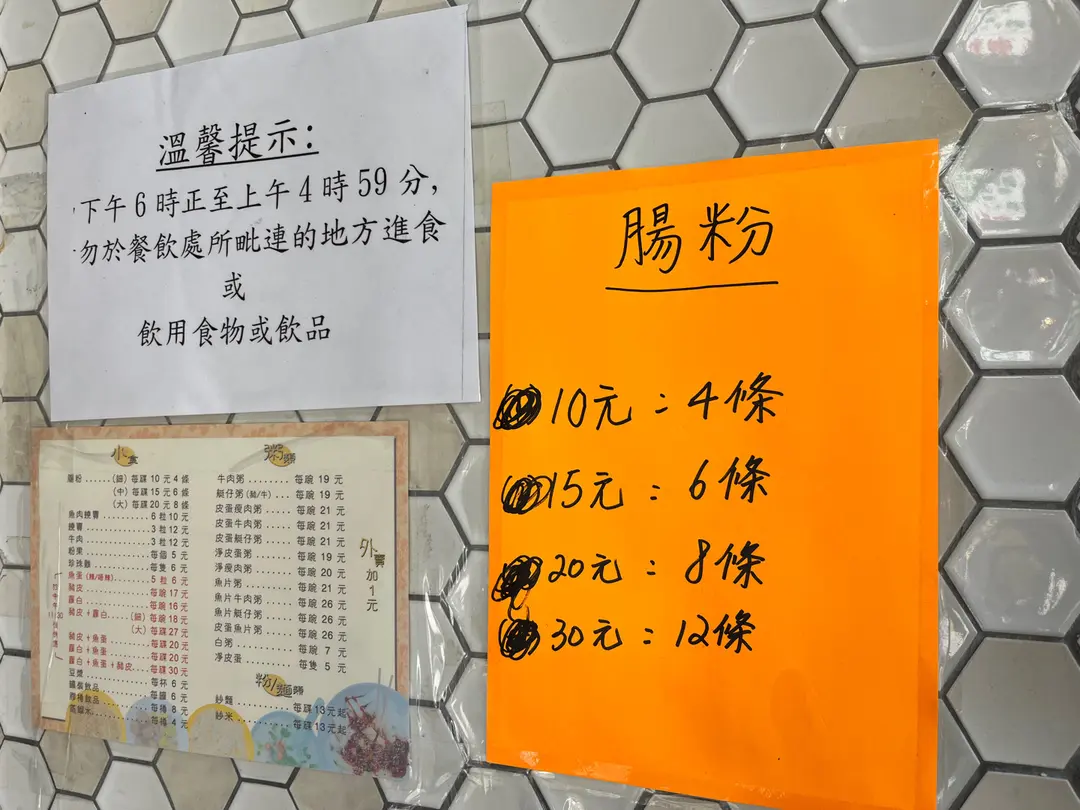 溫馨提示:
下午6時正至上午4時59分,
勿於餐飲處所毗連的地方進食
或
飲用食物或飲品
腸粉
10元：4條
15元：6條
20元：8條
30元：12條
小食
腸粉......(細)每碟10元4條
(中)每碟15元6條
(大)每碟20元8條
魚肉燒賣..........6粒10元
燒賣..............3粒12元
牛肉..............3粒12元
粉果..............每個5元
珍珠雞............每隻6元
魚蛋......5粒6元
豬皮............每碗17元
蘿白............每碗16元
豬皮+蘿白....(細)每碗18元
(大)每碟27元
豬皮+魚蛋......每碟20元
蘿白+魚蛋......每碟20元
蘿白+魚蛋+豬皮....每碟30元
豆漿............每杯6元
罐裝飲品........每罐6元
樽裝飲品........每樽8元
每樽4元
粥類
牛肉粥........每碗19元
艇仔粥(豬/牛)...每碗19元
皮蛋瘦肉粥......每碗21元
皮蛋牛肉粥......每碗21元
皮蛋艇仔粥......每碗21元
淨皮蛋粥........每碗19元
淨瘦肉粥........每碗20元
魚片粥..........每碗21元
魚片牛肉粥......每碗26元
魚片艇仔粥......每碗26元
皮蛋魚片粥......每碗26元
白粥............每碗7元
淨皮蛋..........每隻5元
外賣加1元
粉麵類
炒麵..........每碟13元起
炒米..........每碟13元起